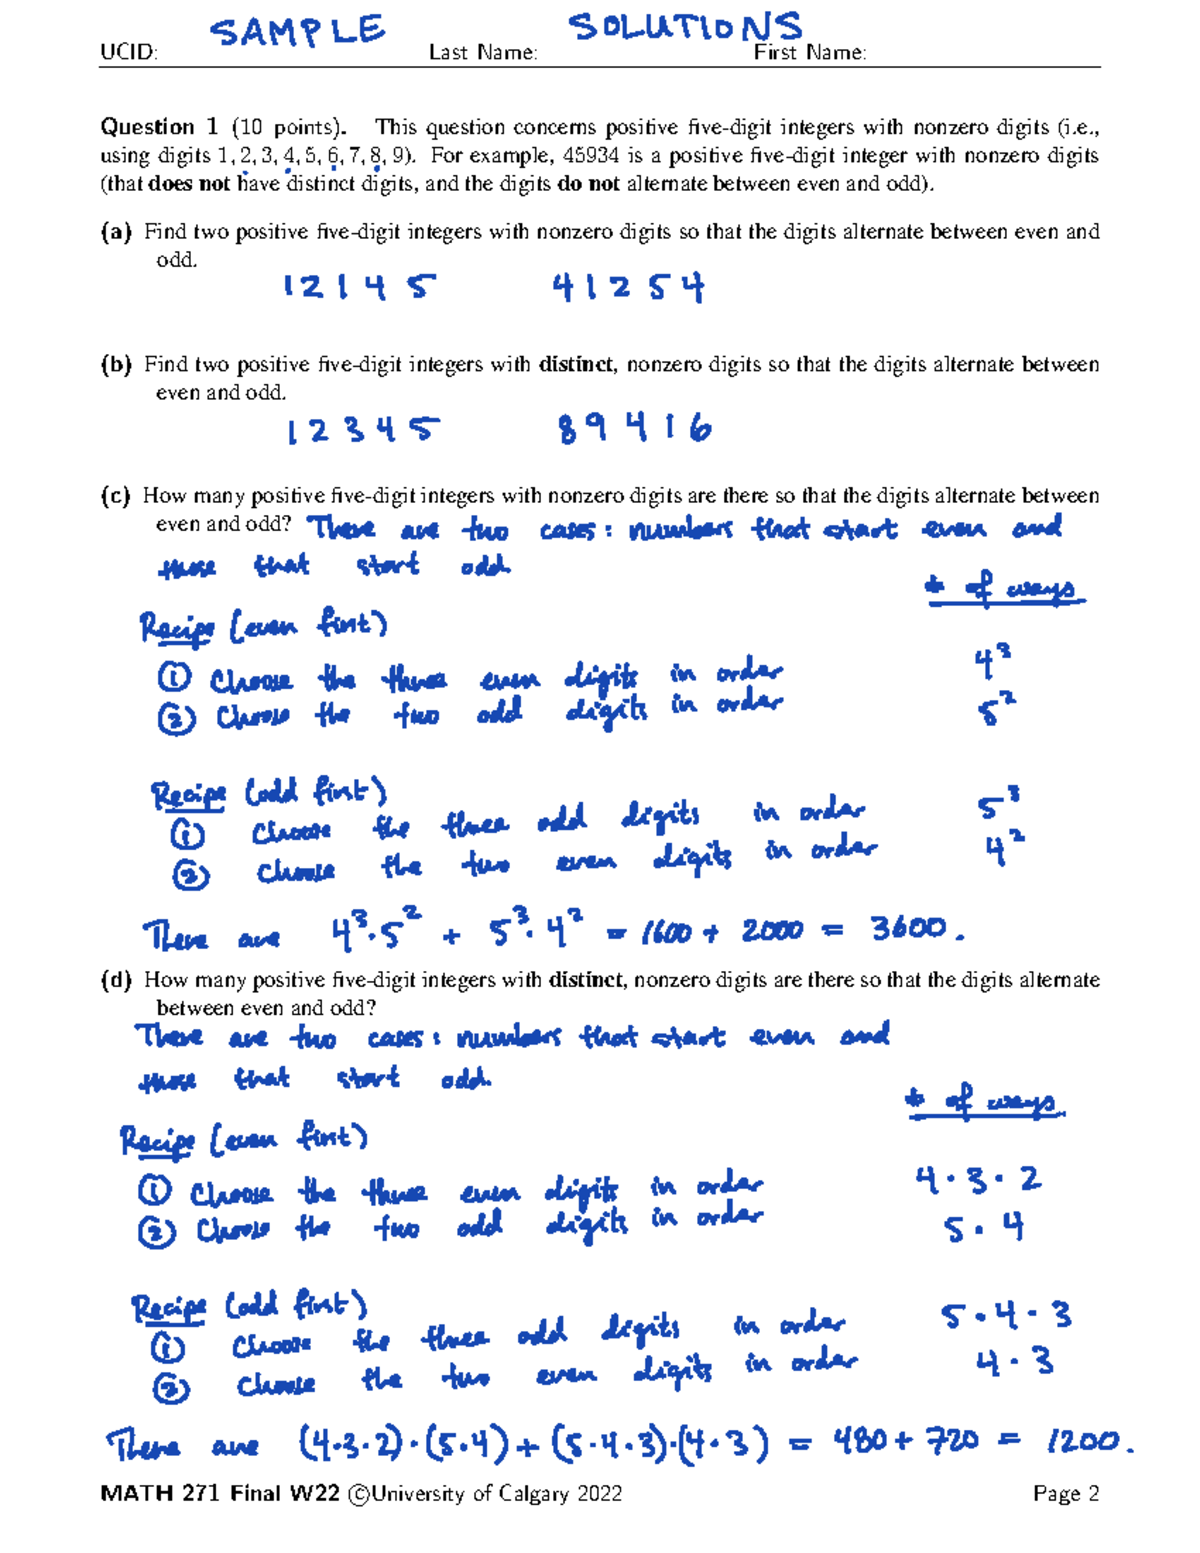 SAMPLE SOLUTIONS
UCID: Last Name: First Name:
Question 1 (10 points). This question concerns positive five-digit integers with nonzero digits (i.e.,
using digits 1, 2, 3, 4, 5, 6, 7, 8, 9). For example, 45934 is a positive five-digit integer with nonzero digits
(that does not have distinct digits, and the digits do not alternate between even and odd).
(a) Find two positive five-digit integers with nonzero digits so that the digits alternate between even and
odd.
12145 41254
(b) Find two positive five-digit integers with distinct, nonzero digits so that the digits alternate between
even and odd.
12345 89416
(c) How many positive five-digit integers with nonzero digits are there so that the digits alternate between
even and odd? There are two cases: numbers that start even and
those that start odd.
# of ways
Recipe (even first)
① Choose the three even digits in order 4³
② Choose the two odd digits in order 5²
Recipe (odd first)
① Choose the three odd digits in order 5³
② Choose the two even digits in order 4²
There are 4³·5² + 5³·4² = 1600 + 2000 = 3600.
(d) How many positive five-digit integers with distinct, nonzero digits are there so that the digits alternate
between even and odd?
There are two cases: numbers that start even and
those that start odd.
# of ways
Recipe (even first)
① Choose the three even digits in order 4·3·2
② Choose the two odd digits in order 5·4
Recipe (odd first)
① Choose the three odd digits in order 5·4·3
② Choose the two even digits in order 4·3
There are (4·3·2)·(5·4) + (5·4·3)·(4·3) = 480 + 720 = 1200.
MATH 271 Final W22 ©University of Calgary 2022 Page 2